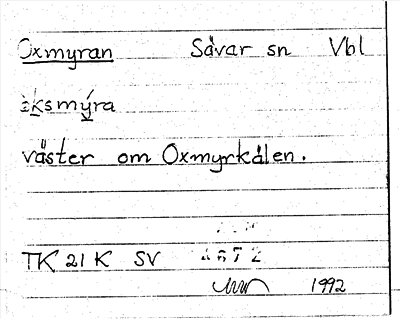 Oxmyran Sävar sn Vbl
väster om Oxmyrkälen.
TK 21 K SV
1992